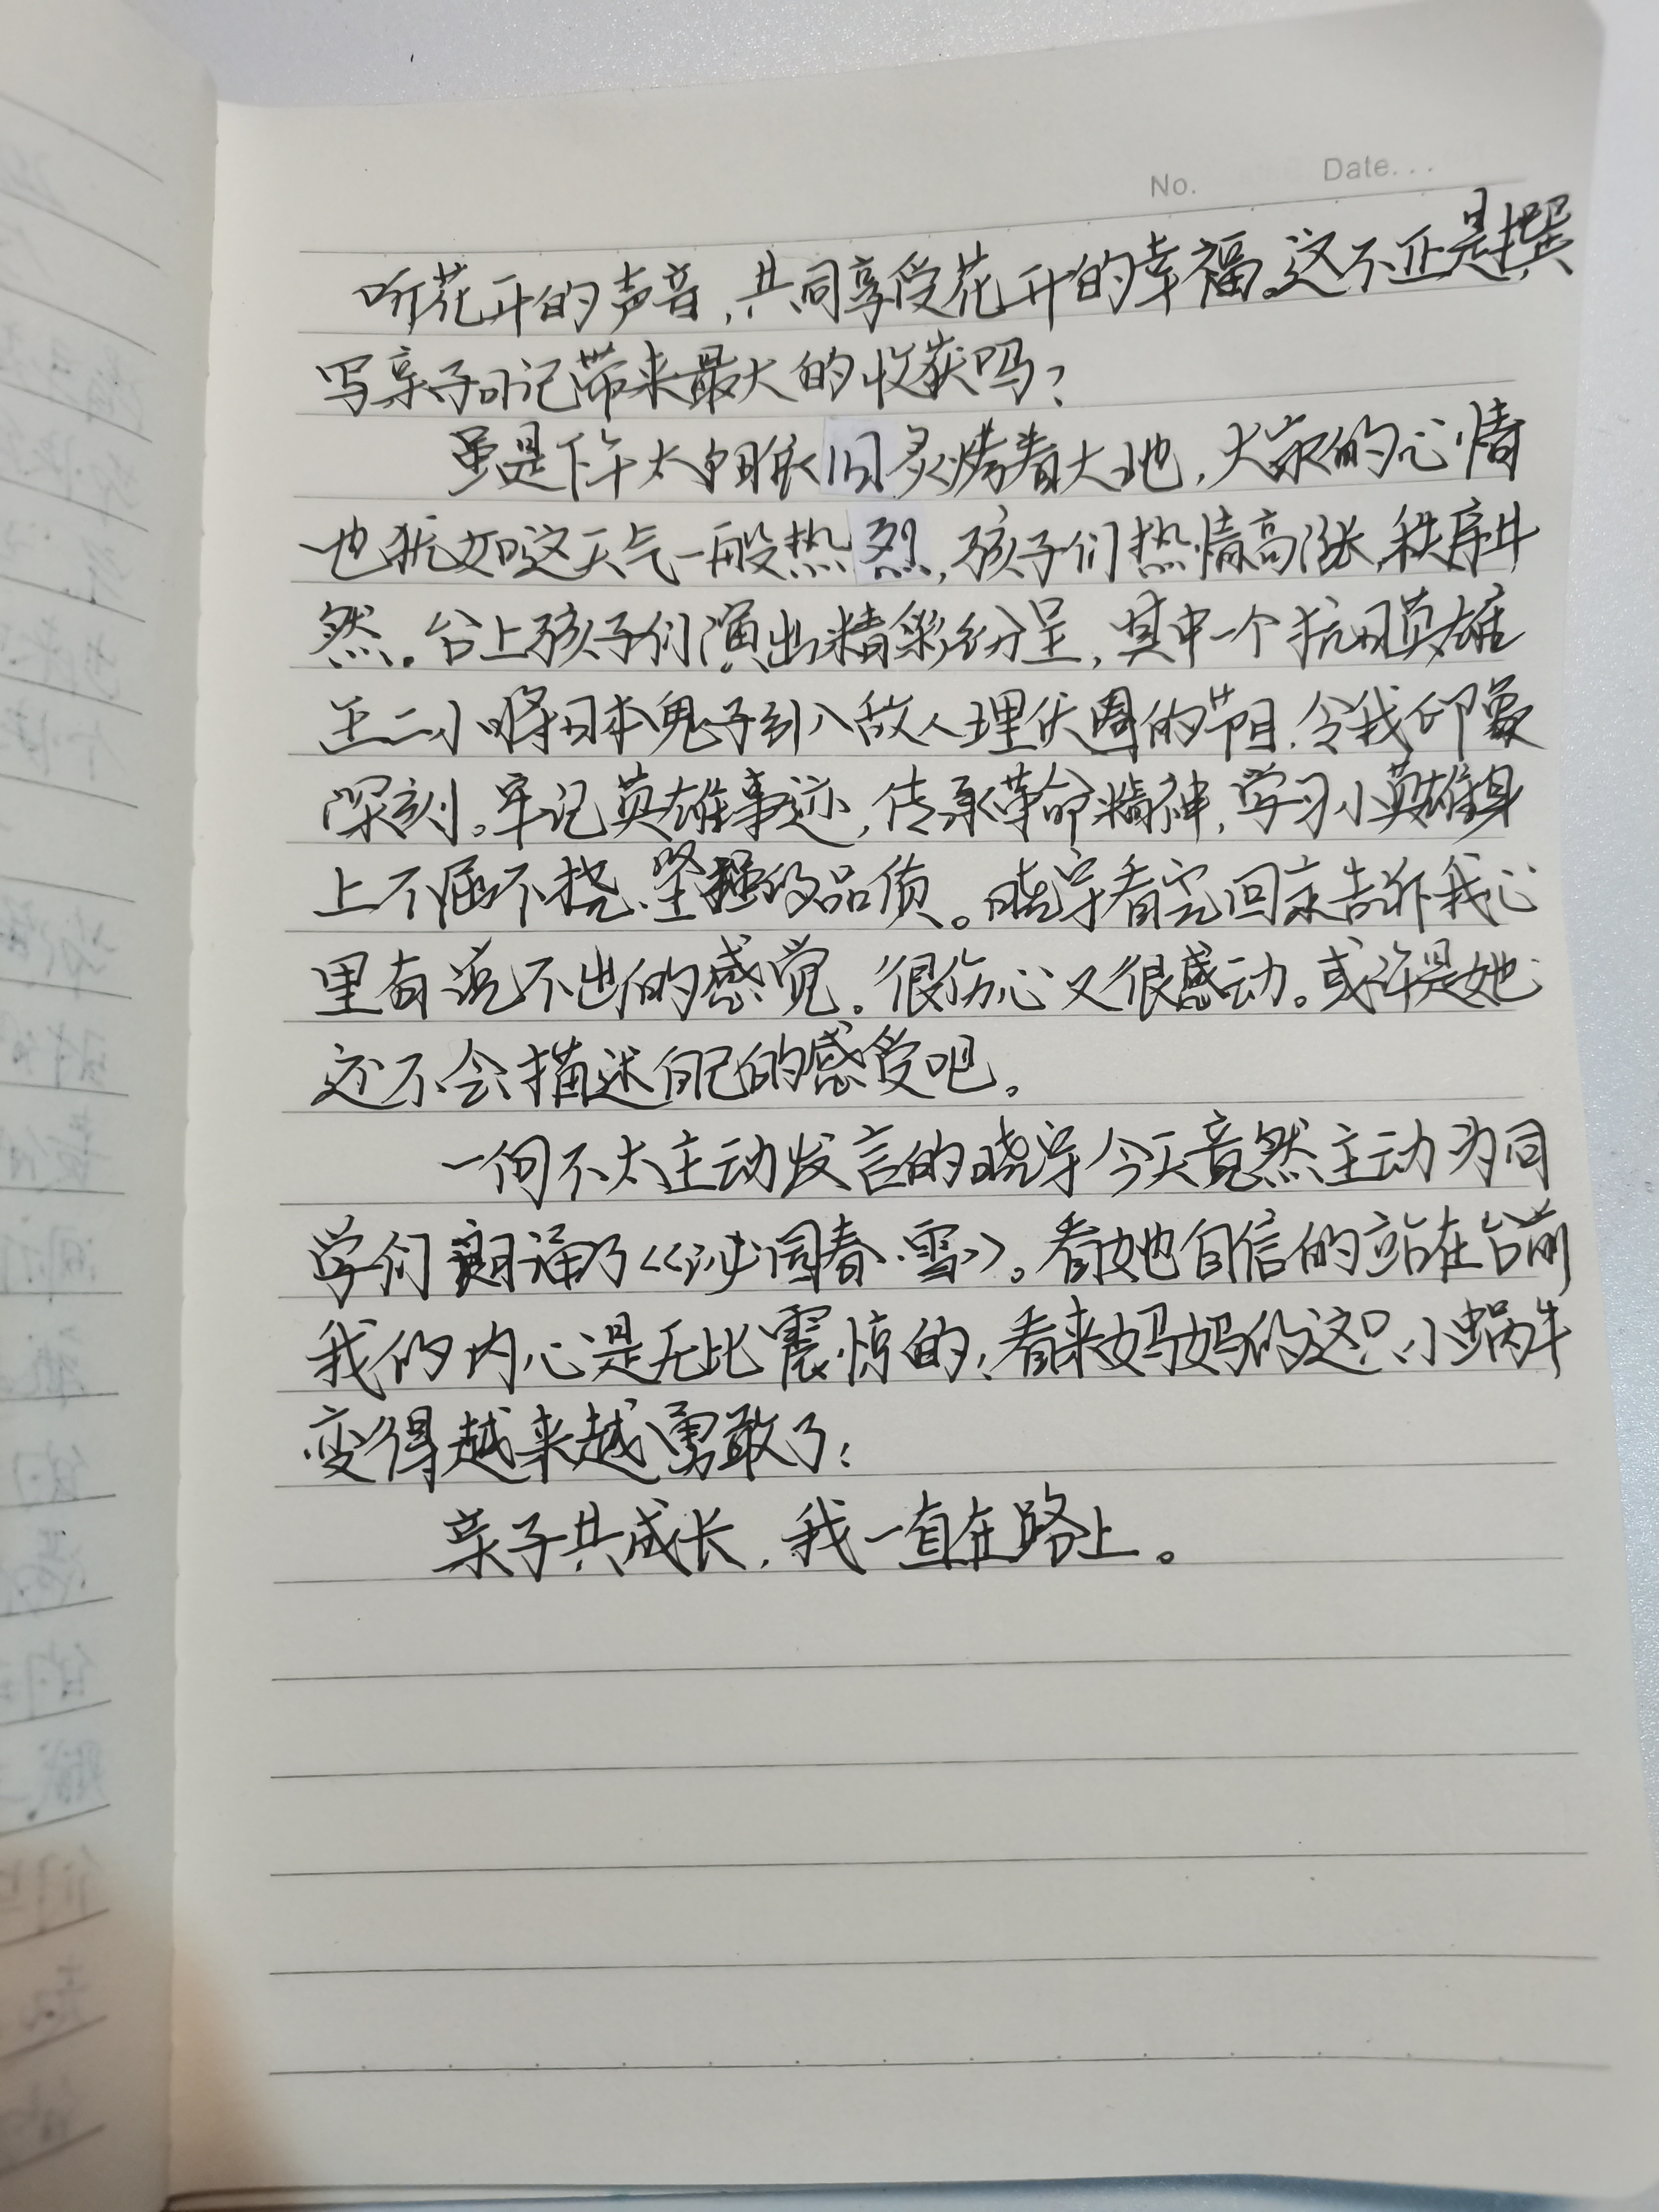 No. Date...
听花开的声音,共同享受花开的幸福。这不正是撰
写亲子日记带来最大的收获吗?
虽是下午太阳依旧炙烤着大地,大家的心情
也犹如这天气一般热烈,孩子们热情高涨,秩序井
然。台上孩子们演出精彩纷呈,其中一个抗日英雄
王二小将日本鬼子引入敌人埋伏圈的节目,令我印象
深刻。牢记英雄事迹,传承革命精神,学习小英雄身
上不屈不挠、坚强的品质。晓宇看完回来告诉我心
里有说不出的感觉。很伤心又很感动。或许是她
还不会描述自己的感受吧。
一向不太主动发言的晓宇今天竟然主动为同
学们朗诵了《沁园春·雪》。看她自信的站在台前
我的内心是无比震惊的,看来妈妈的这只小蜗牛
变得越来越勇敢了!
亲子共成长,我一直在路上。